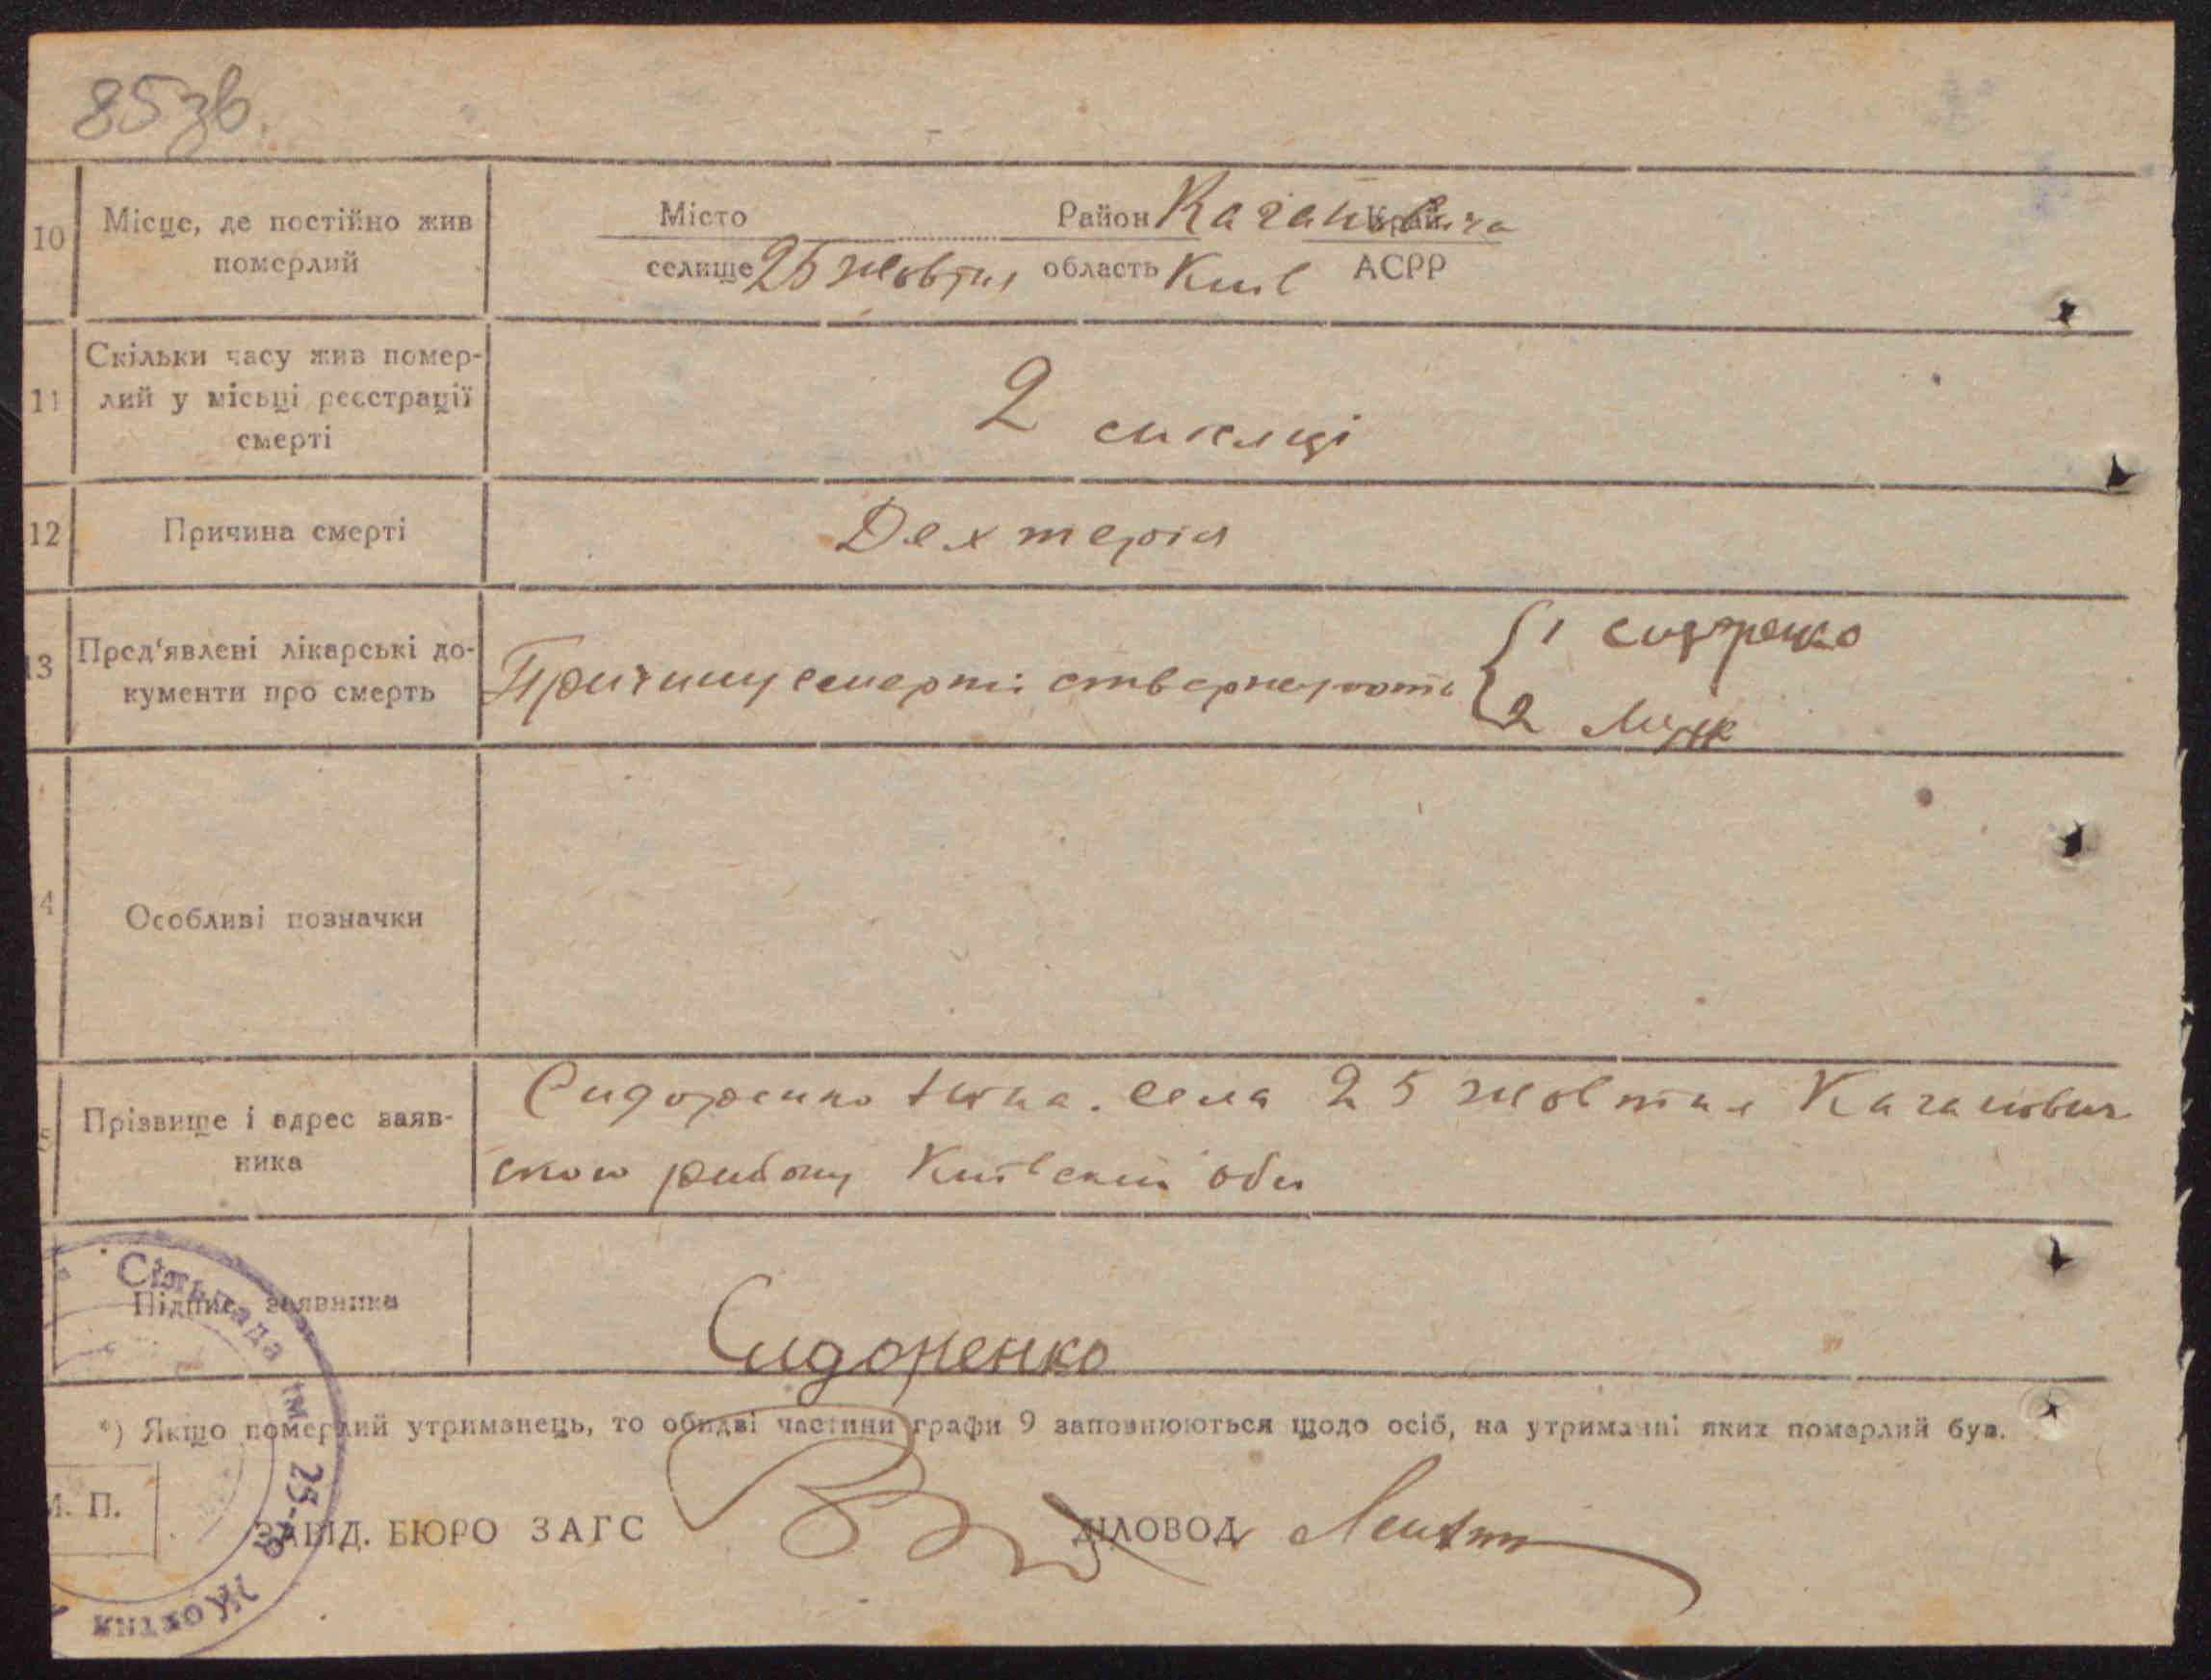 85 зв.
10 Місце, де постійно жив померлий
Місто Район Кагановича Край
селище 25 жовтня область Київ АСРР
11 Скільки часу жив померлий у місьці реєстрації смерті
2 місяці
12 Причина смерті
Дехтерія
13 Пред'явлені лікарські документи про смерть
Причину смерті
1 Сидоренко
2
4 Особливі позначки
5 Прізвище і адрес заявника
Сидоренко села 25 жовтня Каганович
ського району Київської обл
Підпис заявника
Сидоренко
*) Якщо померлий утриманець, то обидві частини графи 9 заповнюються щодо осіб, на утриманні яких померлий був.
М. П.
ЗАВІД. БЮРО ЗАГС ДІЛОВОД
Сільрада ім 25-го Жовтня